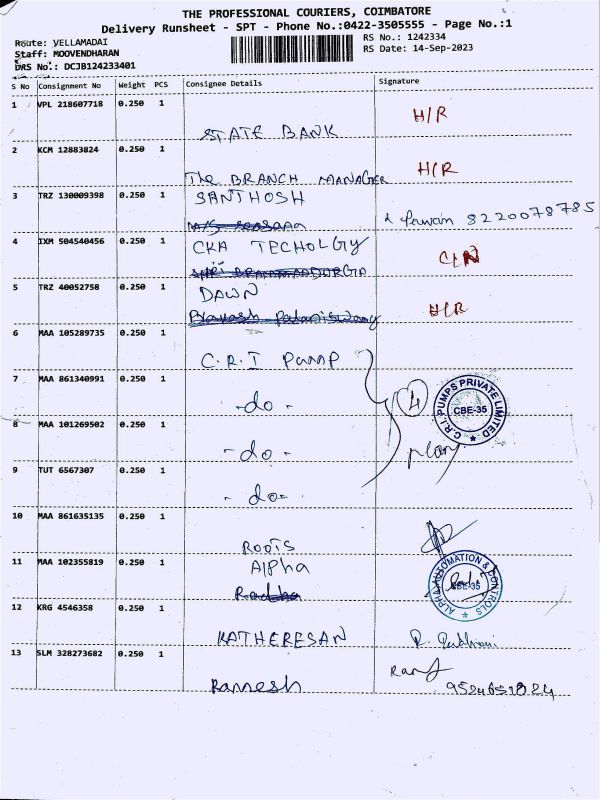 THE PROFESSIONAL COURIERS, COIMBATORE
Delivery Runsheet - SPT - Phone No.:0422-3505555 - Page No.:1
Route: YELLAMADAI
Staff: MOOVENDHARAN
DRS No.: DCJB124233401
RS No.: 1242334
RS Date: 14-Sep-2023
S No Consignment No Weight PCS Consignee Details Signature
1 VPL 218607718 0.250 1
STATE BANK H/R
2 KCM 12883824 0.250 1
The BRANCH MANAGER H/R
3 TRZ 130009398 0.250 1
SANTHOSH
8220078785
4 IXM 504540456 0.250 1
CKA TECHOLGY
5 TRZ 40052758 0.250 1
DAWN H/R
6 MAA 105289735 0.250 1
C.R.I Pump
7 MAA 861340991 0.250 1
-do- 4
C.R.I. PUMPS PRIVATE LIMITED
CBE-35
8 MAA 101269502 0.250 1
-do-
9 TUT 6567307 0.250 1
-do-
10 MAA 861635135 0.250 1
ROOTS
11 MAA 102355819 0.250 1
Alpha
ALPHA AUTOMATION & CONTROLS
CBE-35
12 KRG 4546358 0.250 1
KATHERESAN
13 SLM 328273682 0.250 1
Ramesh